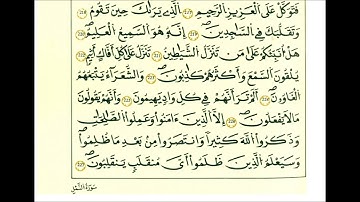 فَتَوَكَّلْ عَلَى الْعَزِيزِ الرَّحِيمِ ٢١٧ الَّذِي يَرَىٰكَ حِينَ تَقُومُ ٢١٨
وَتَقَلُّبَكَ فِي السَّٰجِدِينَ ٢١٩ إِنَّهُ هُوَ السَّمِيعُ الْعَلِيمُ ٢٢٠
هَلْ أُنَبِّئُكُمْ عَلَىٰ مَن تَنَزَّلُ الشَّيَٰطِينُ ٢٢١ تَنَزَّلُ عَلَىٰ كُلِّ أَفَّاكٍ أَثِيمٍ ٢٢٢
يُلْقُونَ السَّمْعَ وَأَكْثَرُهُمْ كَٰذِبُونَ ٢٢٣ وَالشُّعَرَاءُ يَتَّبِعُهُمُ
الْغَاوُونَ ٢٢٤ أَلَمْ تَرَ أَنَّهُمْ فِي كُلِّ وَادٍ يَهِيمُونَ ٢٢٥ وَأَنَّهُمْ يَقُولُونَ
مَا لَا يَفْعَلُونَ ٢٢٦ إِلَّا الَّذِينَ ءَامَنُوا وَعَمِلُوا الصَّٰلِحَٰتِ
وَذَكَرُوا اللَّهَ كَثِيرًا وَانتَصَرُوا مِن بَعْدِ مَا ظُلِمُوا
وَسَيَعْلَمُ الَّذِينَ ظَلَمُوا أَيَّ مُنقَلَبٍ يَنقَلِبُونَ ٢٢٧
سُورَةُ النَّمْلِ